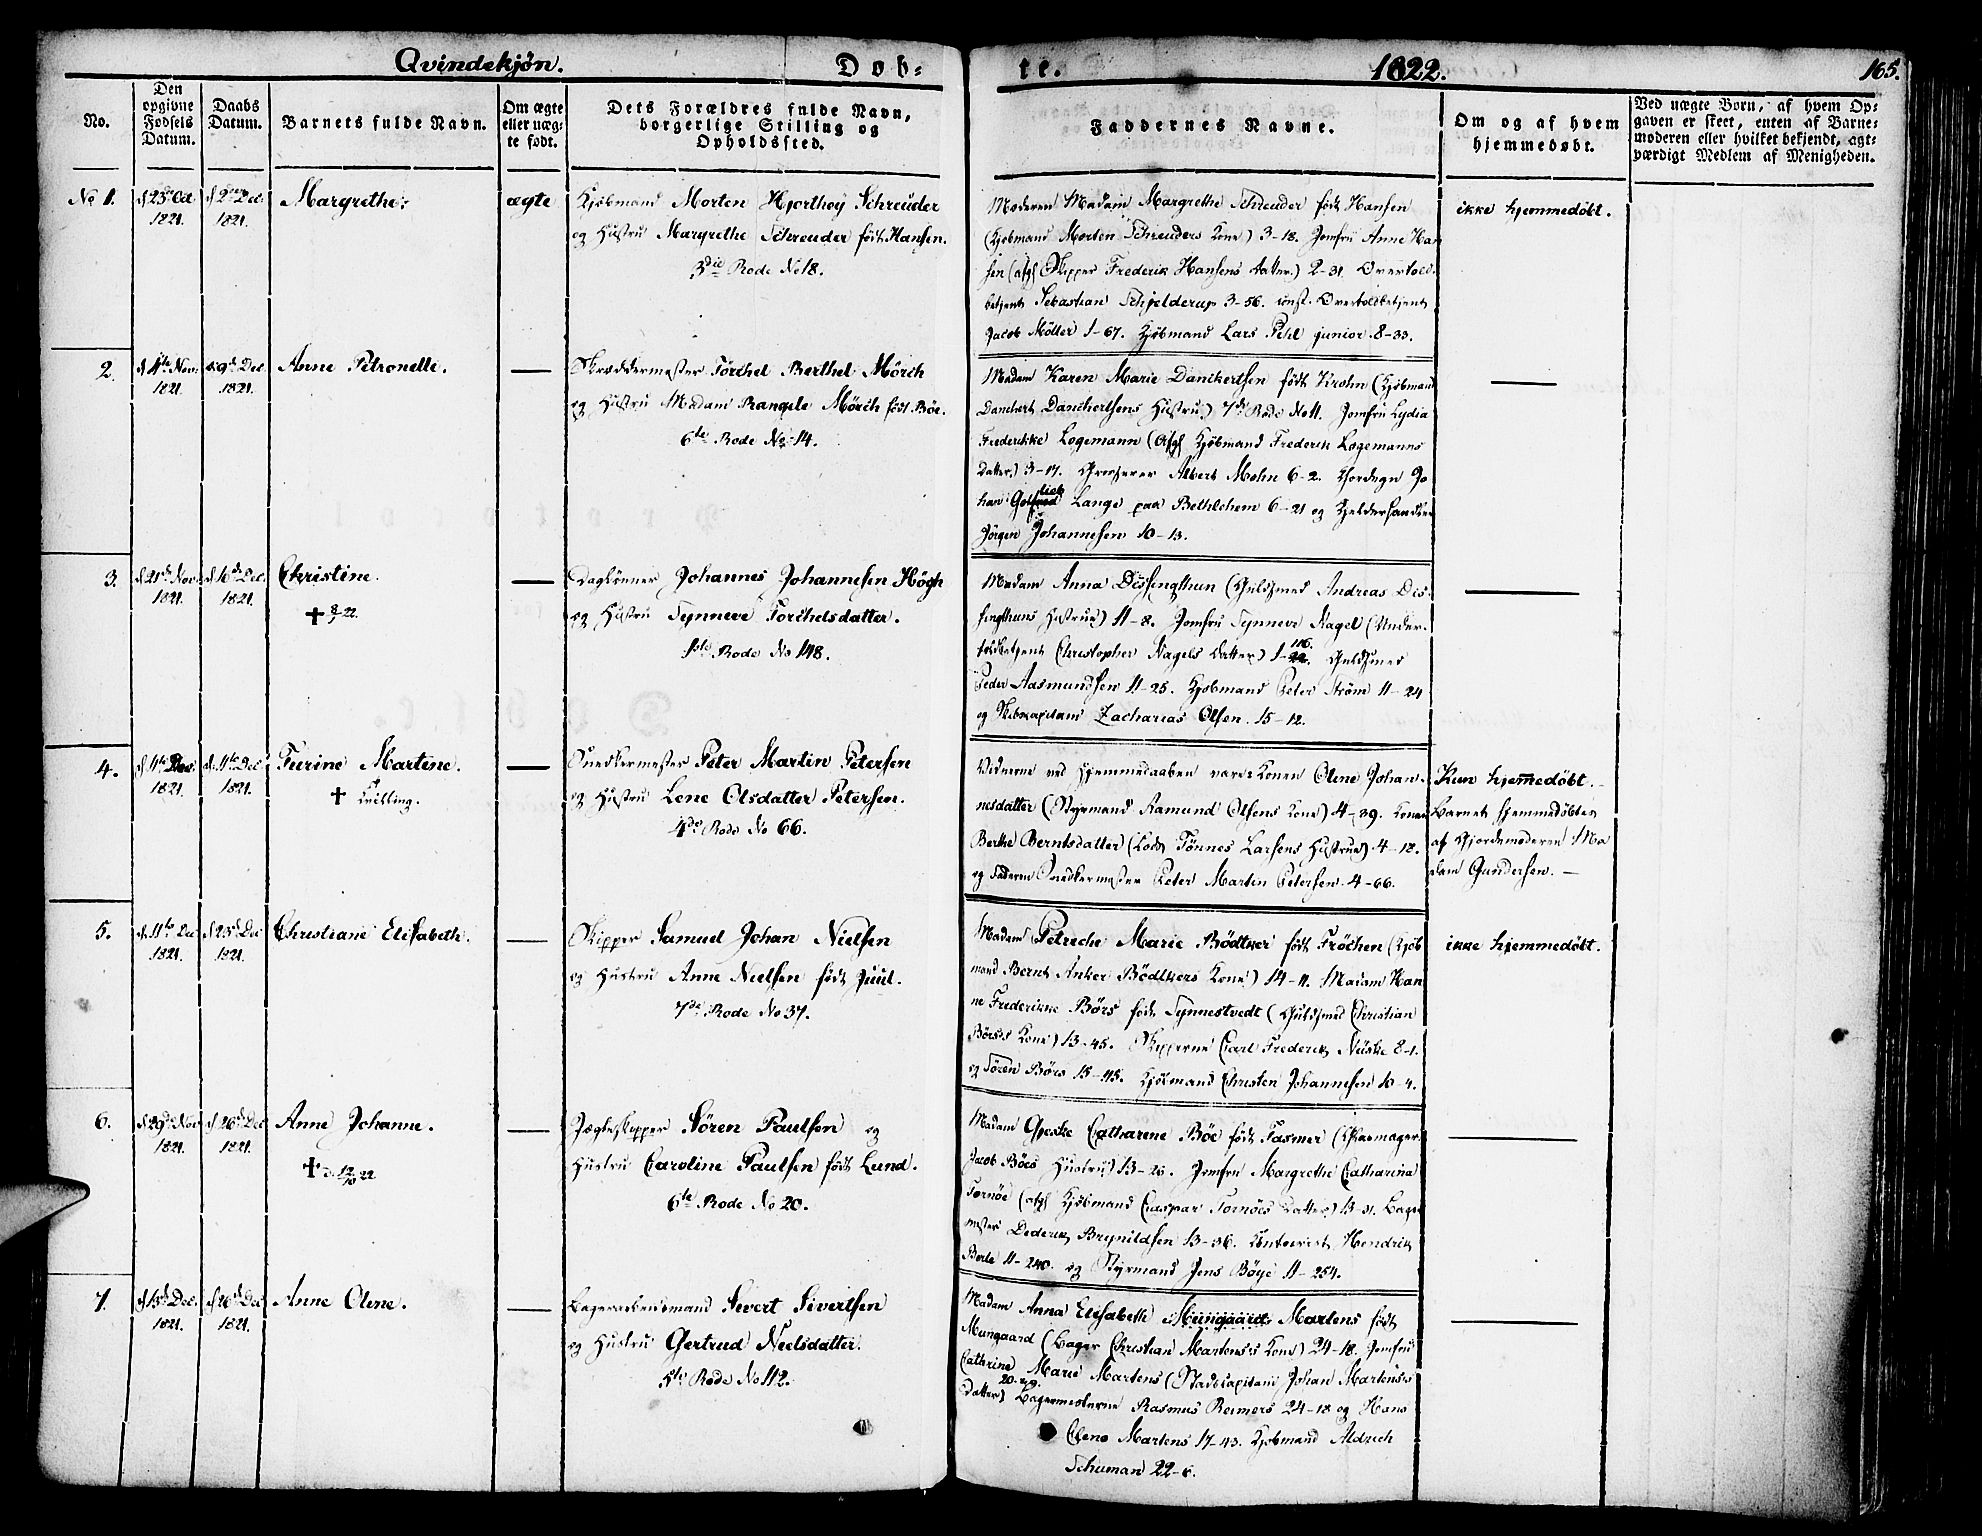 Qvindekjön. Döb=
te. 1822. 165.
No.
Den opgivne Fødsels Datum.
Daabs Datum.
Barnets fulde Navn.
Om ægte eller uæg- te født.
Dets Forældres fulde Navn, borgerlige Stilling og Opholdssted.
Faddernes Navne.
Om og af hvem hjemmedøbt.
Ved uægte Born, af hvem Op- gaven er skeet, enten af Barne- moderen eller hvilket bekjendt, agt- værdigt Medlem af Menigheden.
No 1.
d 23de Oct 1821.
d 2den Dec. 1821.
Margrethe.
ægte
Kjöbmand Morten Hjorthöy Schreuder
og Hustru Margrethe Schreuder födt Hansen.
3die Rode No 18.
Moderen Madam Margrethe Schreuder födt Hansen
(Kjöbmand Morten Schreuders Kone) 3-18. Jomfru Anne Han
sen (afg Skipper Frederik Hansens Datter) 2-31. Overtold-
betjent Sebastian Schjelderup 3-56. const. Overtoldbetjent
Jacob Möller 1-67. Kjöbmand Lars Pihl junior 8-33.
ikke hjemmedöbt.
2.
d 4te Nov. 1821.
d 9de Dec 1821.
Anne Petronelle.
Skræddermester Torchel Berthel Mörch
og Hustru Madam Rangele Mörch födt Böe.
6te Rode No 14.
Madam Karen Marie Danckertsen födt Krohn (Kjöbmand
Danckert Danckertsens Hustrue) 7de Rode No 11. Jomfru Lydia
Frederikke Logemann (afg Kjöbmand Frederik Logemanns
Datter) 3-17. Albert Mohn 6-2. Jo
han Gotlieb Lange paa Bethlehem 6-21 og
Jörgen Johannesen 10-13.
3.
d 21de Nov 1821.
d 16de Dec. 1821.
Christine.
✝ 22.
Daglönner Johannes Johannesen Högh
og Hustru Synneve Torchelsdatter.
1ste Rode No 148.
Madam Anna Dissingthun (Guldsmed Andreas Dis-
singthuns Hustrue) 11-8. Jomfru Synneve Nagel (Under-
toldbetjent Christopher Nagels Datter) 1-116. Guldsmed
Peder Aasmundsen 11-25. Kjöbmand Peter Ström 11-24
og Skibscapitain Zacharias Olsen. 15-12.
4.
d 11te Dec. 1821.
d. 11te Dec 1821.
Turine Martine.
✝ Tvilling.
Snedkermester Peter Martin Petersen
og Hustru Lene Olsdatter Petersen.
4de Rode No 66.
Viderne ved Hjemmedaaben vare: Konen Oline Johan-
nesdatter (Styrmand Aamund Olsens Kone) 4-39. Konen
Berthe Berntsdatter (Lods Tönnes Larsens Hustrue) 4-18.
og Faderen Snedkermester Peter Martin Petersen. 4-66.
Kun hjemmedöbt.-
Barnet hjemmedöbten
af Gjordemoderen Ma
dam Gundersen. -
5.
d 11te Dec 1821.
d 23de Dec 1821.
Christiane Elisabeth.
Skipper Samuel Johan Nielsen
og Hustru Anne Nielsen födt Juul.
7de Rode No 37.
Madam Petriche Marie Bödtker födt Fröchen (Kjöb
mand Bernt Anker Bödtkers Kone) 14-11. Madam Han
ne Frederikke Börs födt Synnestvedt (Guldsmed Christian
Börs's Kone) 13-45. Skipperne Carl Frederik Nüske 8-1.
og Sören Börs 15-45. Kjöbmand Christen Johannesen 10-4.
ikke hjemmedöbt.
6.
d 29de Nov 1821.
d 26de Dec 1821.
Anne Johanne.
✝ d. 12/10 22
Jægteskipper Sören Paulsen og
Hustru Caroline Paulsen födt Lund.
6te Rode No 20.
Madam Geske Catharene Böe födt Fasmer (
Jacob Böes Hustrue) 13-26. Jomfru Margrethe Catharina
Tornöe (afg Kjöbmand Caspar Tornöes Datter) 13-31. Bager
mester Dederik Brynildsen 13-36. Hendrik
Berle 11-240. og Styrmand Jens Böye 11-254.
7.
d 15de Dec. 1821.
d 26de Dec 1821.
Anne Oline.
Bagerarbeidsmand Sivert Sivertsen
og Hustru Gertrud Neelsdatter.
5te Rode No 112.
Madam Anna Elisabeth Mungaard Martens födt
Mungaard (Bager Christian Martens's Kone) 24-18. Jomfru
Cathrine Marie Martens (Stadscapitain Johan Martens's
Datter) 20-29. Bagermesterne Rasmus Reimers 24-18 og Hans
Olene Martens 17-43. Kjöbmand Aldrich
Schuman 22-6.